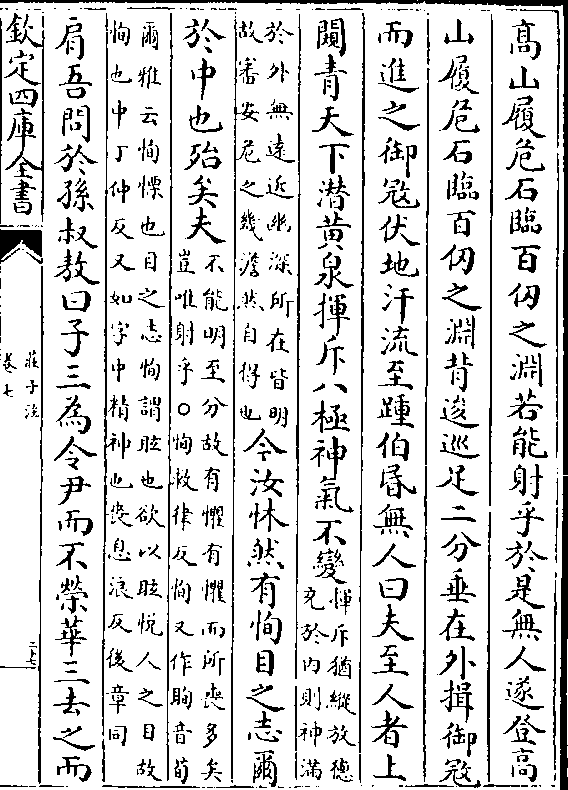 高山履危石臨百仞之淵若能射乎於是無人遂登高
山履危石臨百仞之淵背逡巡足二分垂在外揖御寇
而進之御寇伏地汗流至踵伯昏無人曰夫至人者上
闚青天下潛黄泉揮斥八極神氣不變揮斥猶縱放德
充於内則神滿
於外無逺近幽深所在皆明
故審安危之機澹然自得也今汝怵然有恂目之志爾
於中也殆矣夫不能明至分故有懼有懼而所喪多矣
豈唯射乎○恂救律反恂又作眴音荀
爾雅云恂慄也目之志恂謂眩也欲以眩悦人之目故
恂也中丁仲反又如字中精神也喪息浪反後章同
肩吾問於孫叔敖曰子三為令尹而不榮華三去之而
欽定四庫全書
莊子注
卷七
二十七